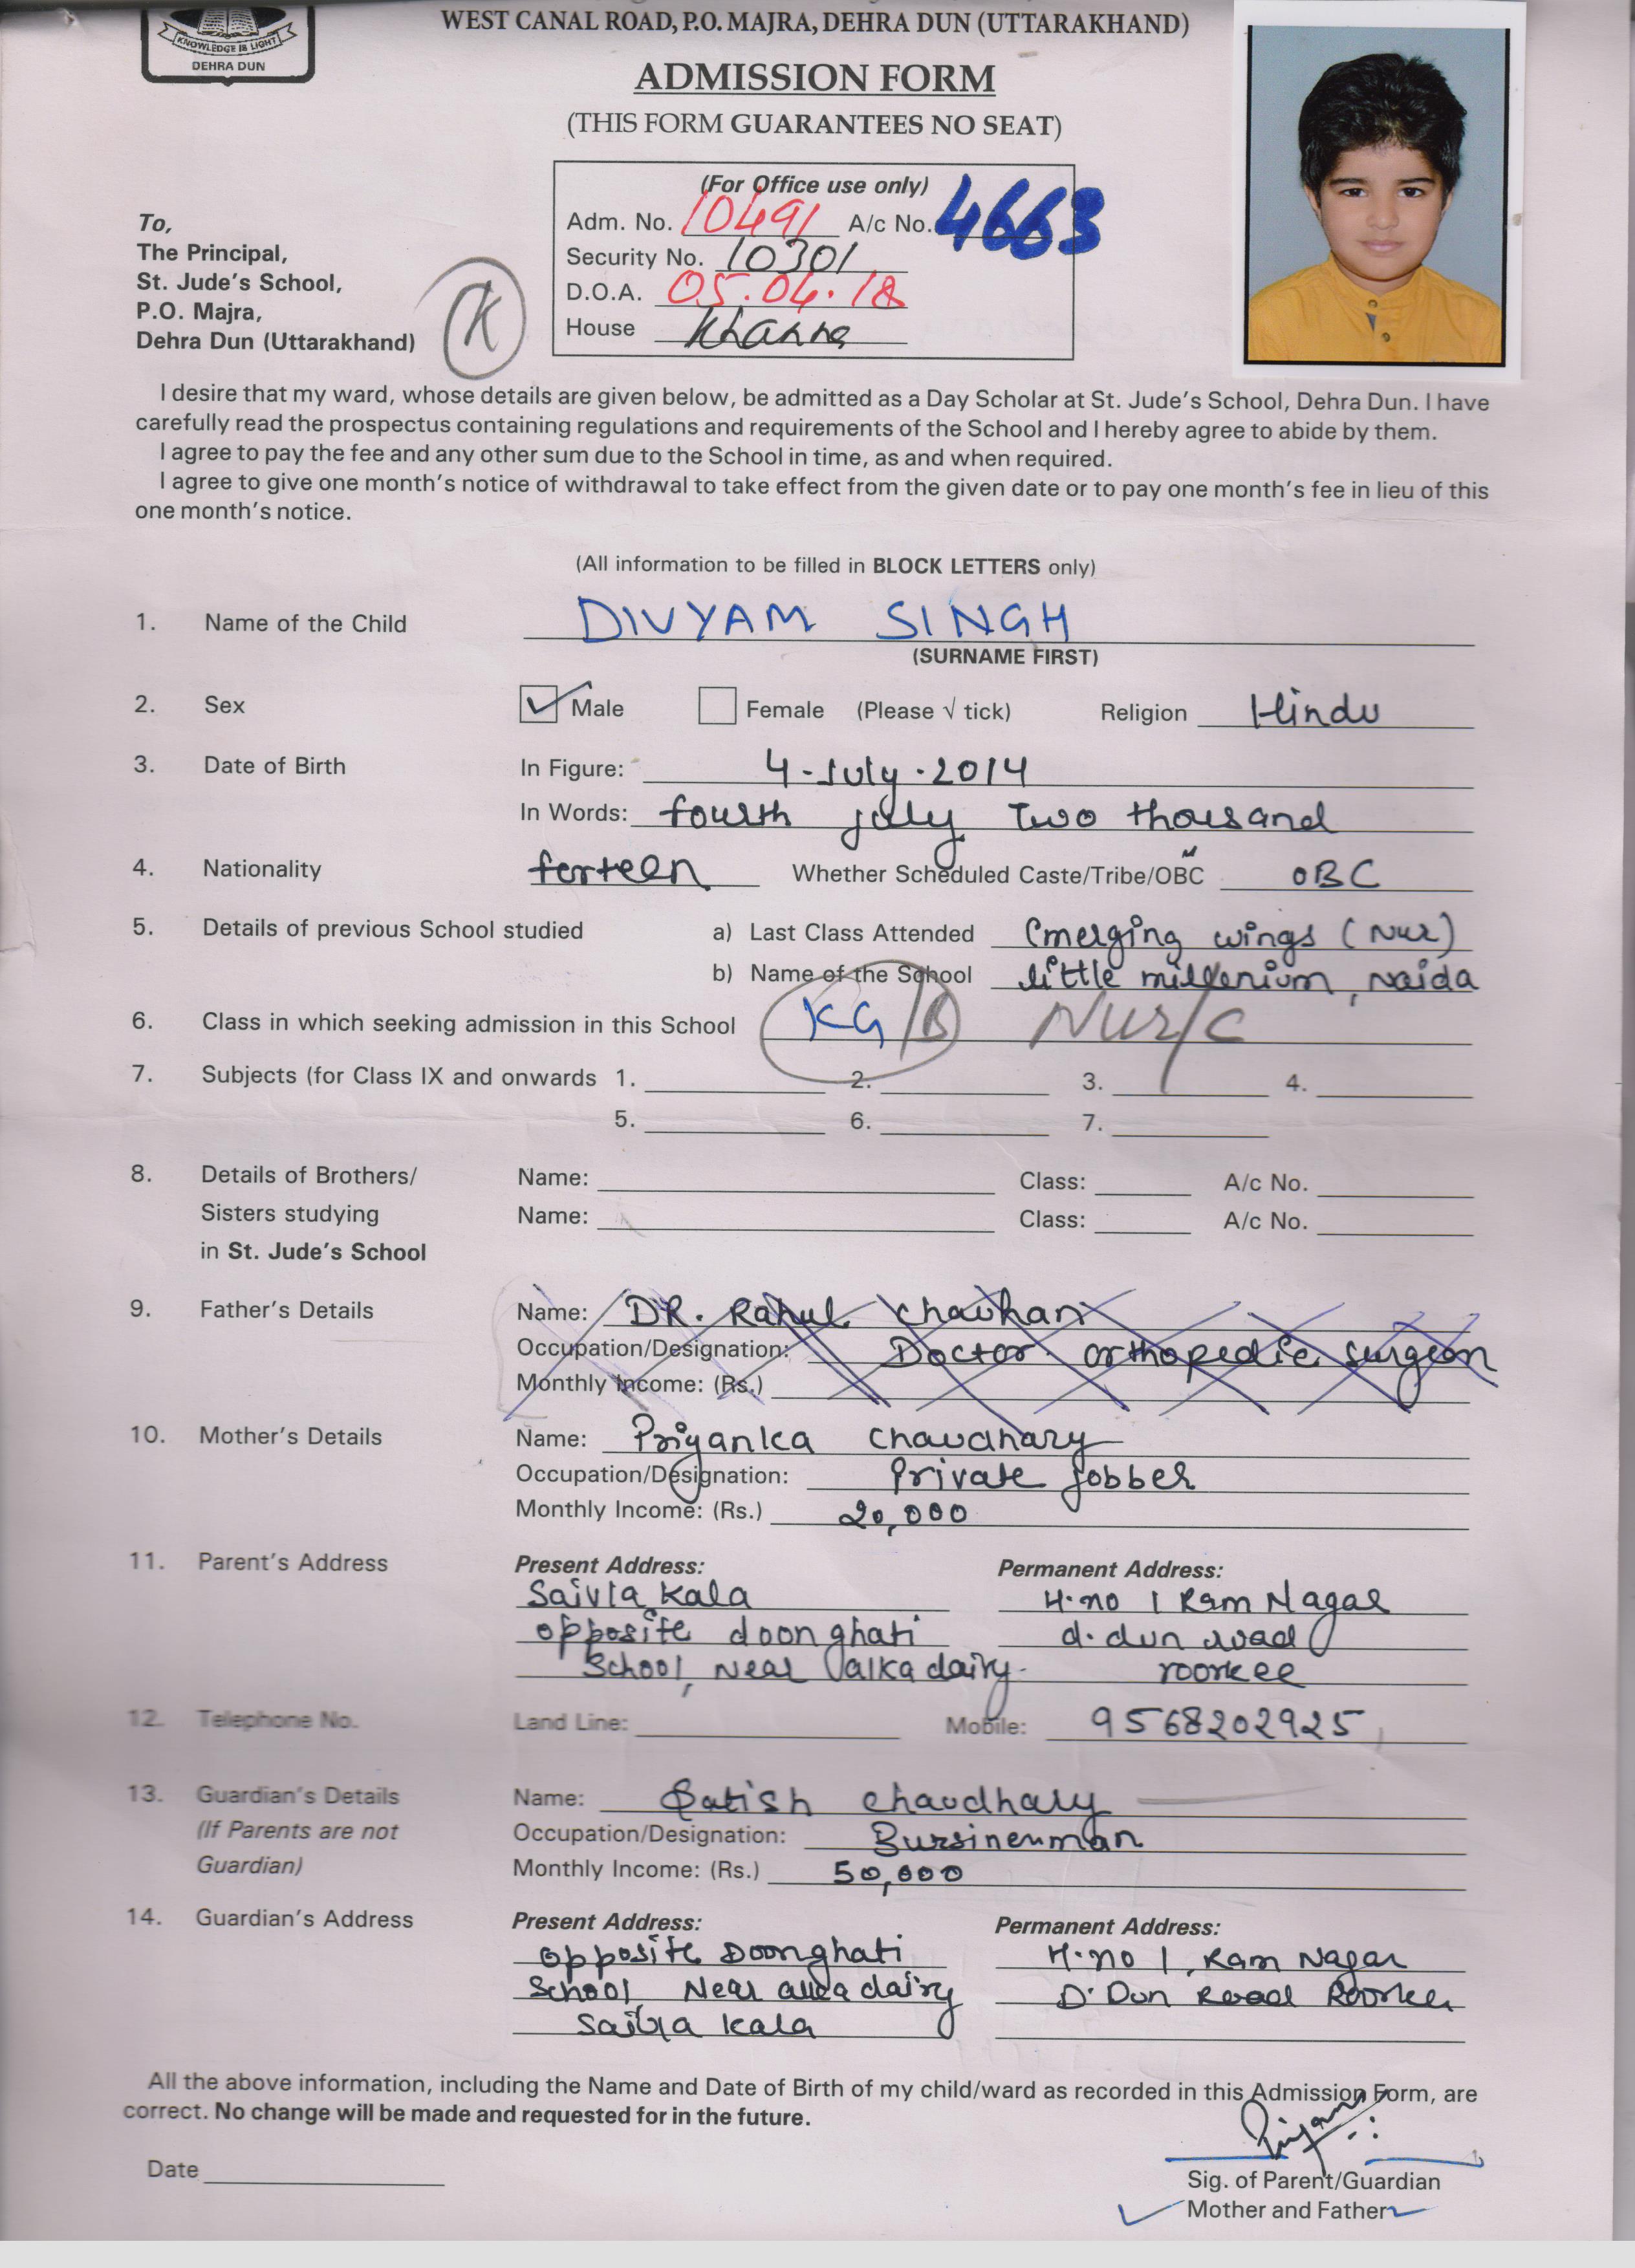 KNOWLEDGE IS LIGHT
DEHRA DUN
WEST CANAL ROAD, P.O. MAJRA, DEHRA DUN (UTTARAKHAND)
ADMISSION FORM
(THIS FORM GUARANTEES NO SEAT)
(For Office use only)
Adm. No. 10491 A/c No. 4663
Security No. 10301
D.O.A. 05.04.18
House Khanna
To,
The Principal,
St. Jude's School,
P.O. Majra,
Dehra Dun (Uttarakhand)
K
I desire that my ward, whose details are given below, be admitted as a Day Scholar at St. Jude's School, Dehra Dun. I have
carefully read the prospectus containing regulations and requirements of the School and I hereby agree to abide by them.
I agree to pay the fee and any other sum due to the School in time, as and when required.
I agree to give one month's notice of withdrawal to take effect from the given date or to pay one month's fee in lieu of this
one month's notice.
(All information to be filled in BLOCK LETTERS only)
1. Name of the Child DIVYAM SINGH
(SURNAME FIRST)
2. Sex Male Female (Please √ tick) Religion Hindu
3. Date of Birth In Figure: 4-July-2014
In Words: fourth july Two thousand
4. Nationality forteen Whether Scheduled Caste/Tribe/OBC OBC
5. Details of previous School studied a) Last Class Attended Emerging wings (Nur)
b) Name of the School little millenium, Noida
6. Class in which seeking admission in this School KG/B Nur/C
7. Subjects (for Class IX and onwards 1. 2. 3. 4.
5. 6. 7.
8. Details of Brothers/ Name: Class: A/c No.
Sisters studying Name: Class: A/c No.
in St. Jude's School
9. Father's Details Name: DR. Rahul Chauhan
Occupation/Designation: Doctor. orthopedic surgeon
Monthly Income: (Rs.)
10. Mother's Details Name: Priyanka Chaudhary
Occupation/Designation: Private jobber
Monthly Income: (Rs.) 20,000
11. Parent's Address Present Address: Permanent Address:
Saivla Kala H.no 1 Ram Nagar
opposite doonghati d.dun road
School, Near alka dairy. roorkee
12. Telephone No. Land Line: Mobile: 9568202925
13. Guardian's Details Name: Satish Chaudhary
(If Parents are not Occupation/Designation: Bursinenman
Guardian) Monthly Income: (Rs.) 50,000
14. Guardian's Address Present Address: Permanent Address:
opposite Doonghati H.no 1, Ram Nagar
School Near alka dairy D.Dun Road Roorkee
Saivla Kala
All the above information, including the Name and Date of Birth of my child/ward as recorded in this Admission Form, are
correct. No change will be made and requested for in the future.
Date
Sig. of Parent/Guardian
Mother and Father